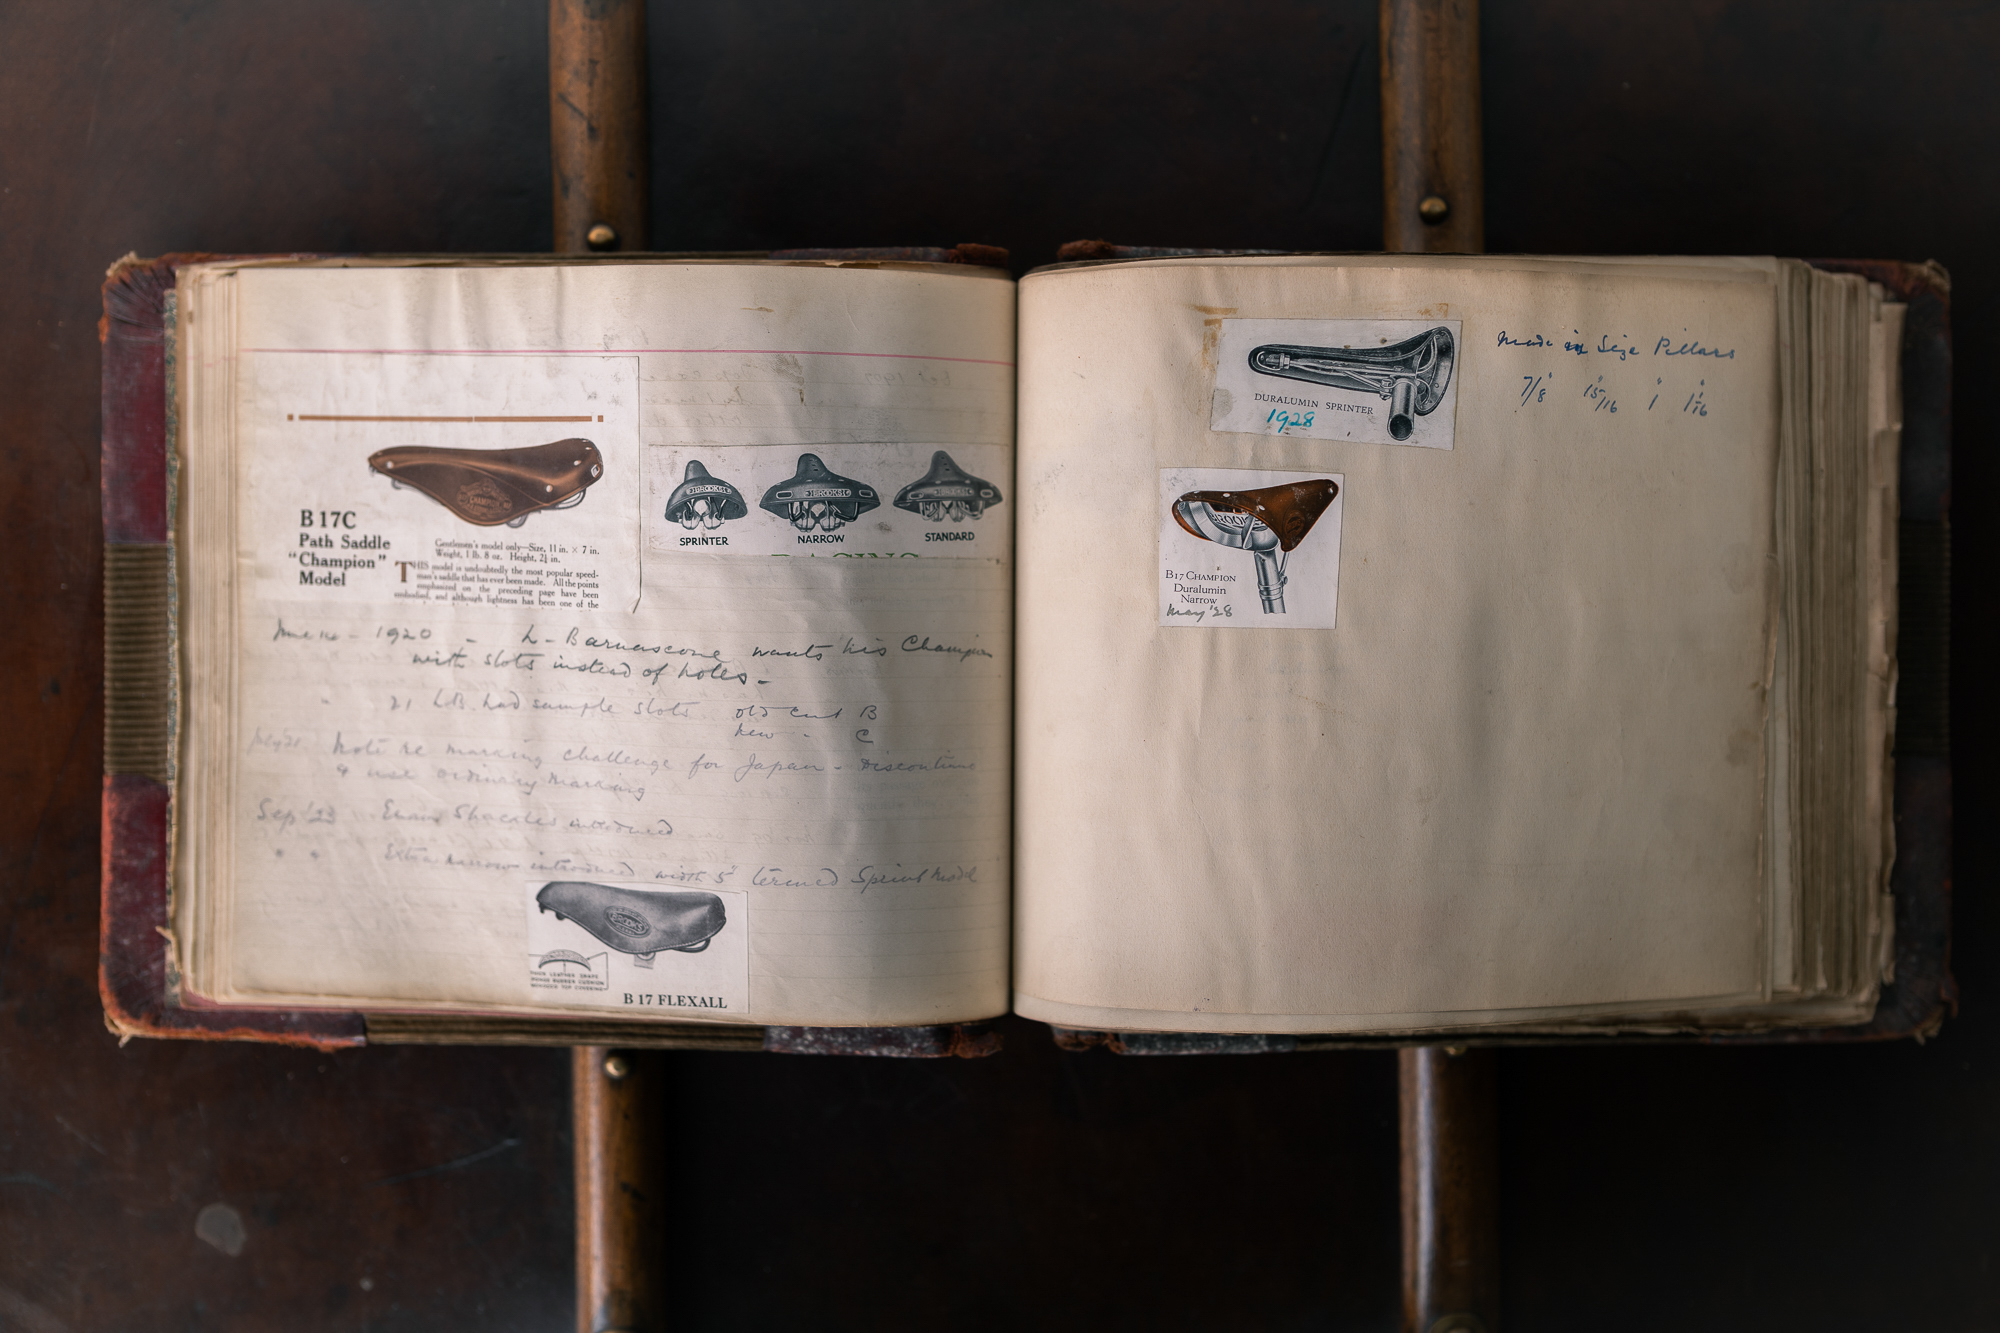 B 17C
Path Saddle
"Champion"
Model
Gentlemen's model only—Size, 11 in. × 7 in.
Weight, 1 lb. 8 oz. Height, 2¾ in.
THIS model is undoubtedly the most popular speed-
man's saddle that has ever been made. All the points
emphasized on the preceding page have been
embodied, and although lightness has been one of the
CHAMPION
BROOKS
BROOKS
BROOKS
SPRINTER
NARROW
STANDARD
RACING
June 14 - 1920 - L - Barnascone wants his Champion
with slots instead of holes -
" 21 LB. had sample slots old cut B
new " C
Note re marking challenge for Japan - Discontinue
& use ordinary marking
Sep '23 Shackles introduced
" " Extra narrow introduced width 5" termed Sprint Model
BROOKS
B 17 FLEXALL
DURALUMIN SPRINTER
1928
Made in Size Pillars
7/8" 15/16" 1" 1 1/16"
BROOKS
B17 CHAMPION
Duralumin
Narrow
May '28